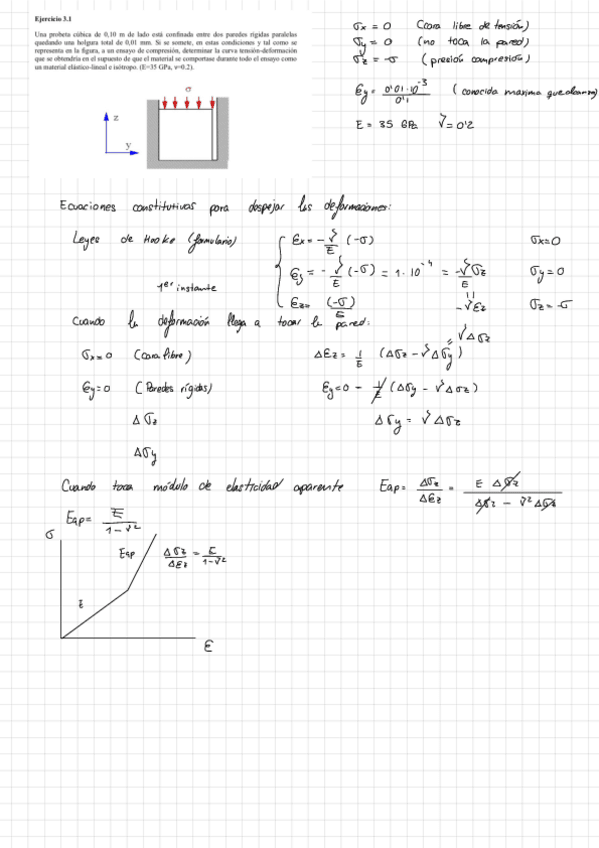 Ejercicio 3.1
Una probeta cúbica de 0,10 m de lado está confinada entre dos paredes rígidas paralelas
quedando una holgura total de 0,01 mm. Si se somete, en estas condiciones y tal como se
representa en la figura, a un ensayo de compresión, determinar la curva tensión-deformación
que se obtendría en el supuesto de que el material se comportase durante todo el ensayo como
un material elástico-lineal e isótropo. (E=35 GPa, ν=0.2).
σ
z
y
σx = 0 (cara libre de tensión)
σy = 0 (no toca la pared)
σz = -σ (presión compresión)
εy = 0'01·10⁻³ / 0'1 (conocida maxima
E = 35 GPa ν = 0'2
Ecuaciones constitutivas para despejar las deformaciones:
Leyes de Hooke (formulario)
εx = - ν/E (-σ) σx=0
εy = - ν/E (-σ) = 1·10⁻⁴ = -ν σz/E σy=0
1er instante
εz= (-σ)/E -ν εz σz = -σ
Cuando la deformación llega a tocar la pared:
= ν Δσz
σx=0 (Cara libre) Δεz = 1/E (Δσz - ν Δσy)
εy=0 (Paredes rígidas) εy=0 - 1/E (Δσy - ν Δσz)
Δσz Δσy = ν Δσz
Δσy
Cuando toca módulo de elasticidad aparente Eap= Δσz/Δεz = E Δσz / Δσz - ν² Δσz
Eap= E/1-ν²
σ
Eap Δσz/Δεz = E/1-ν²
E
ε